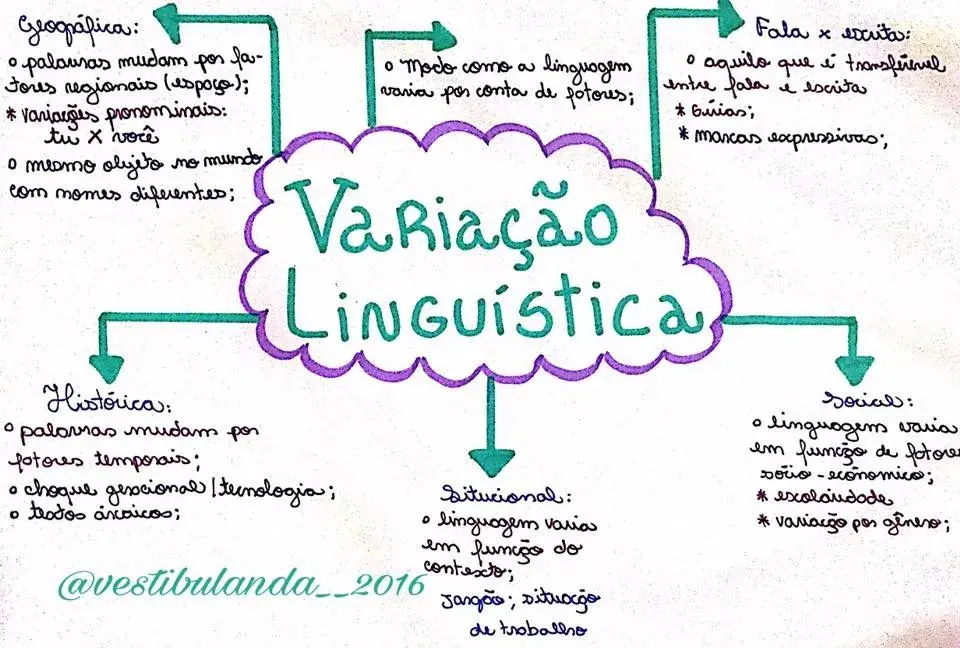 Variação
Linguística
Geográfica:
o palavras mudam por fa-
tores regionais (espaço);
* variações pronominais:
tu X você
o mesmo objeto no mundo
com nomes diferentes;
o Modo como a linguagem
varia por conta de fatores;
Fala x escrita:
o aquilo que é transferível
entre fala e escrita
* Gírias;
* marcas expressivas;
Histórica:
o palavras mudam por
fatores temporais;
o choque geracional/tecnologia;
o textos arcaicos;
Situcional:
o linguagem varia
em função do
contexto;
Jargão; situação
de trabalho
Social:
o linguagem varia
em função de fatores
sócio-econômico;
* escolaridade
* variação por gênero;
@vestibulanda__2016